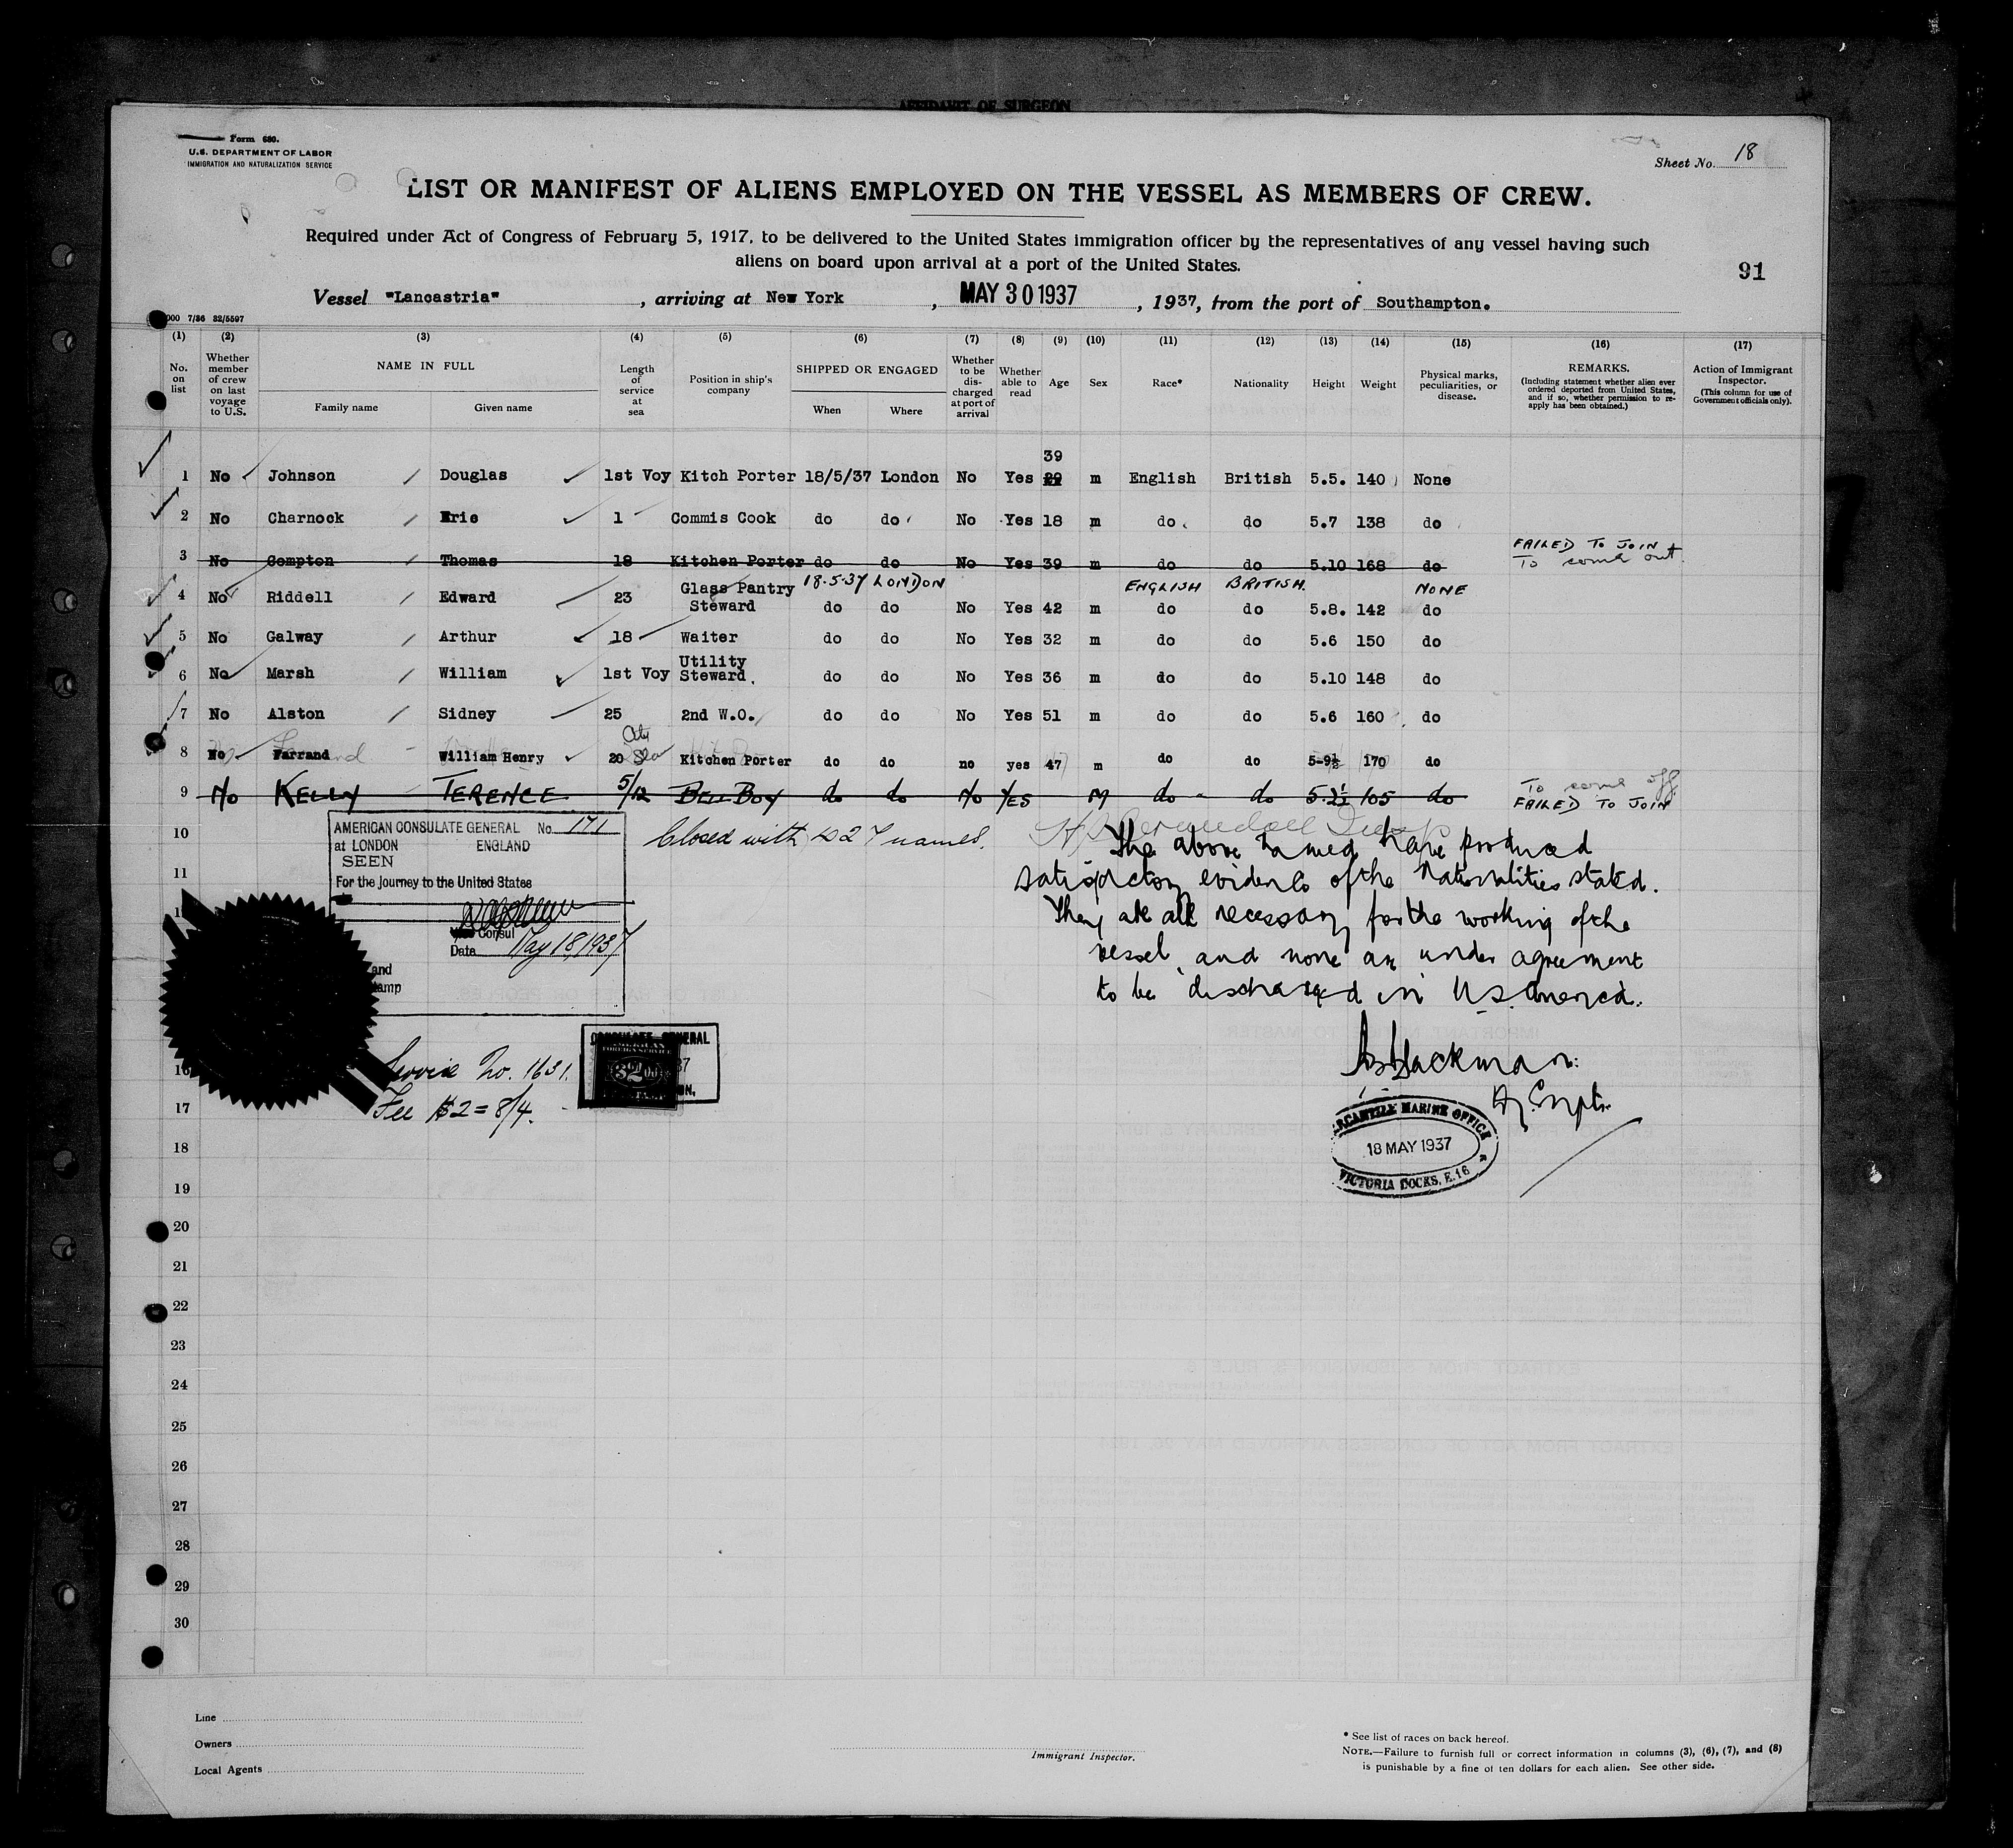 AFFIDAVIT OF SURGEON
Form 680.
U.S. DEPARTMENT OF LABOR
IMMIGRATION AND NATURALIZATION SERVICE
Sheet No. 18
LIST OR MANIFEST OF ALIENS EMPLOYED ON THE VESSEL AS MEMBERS OF CREW.
Required under Act of Congress of February 5, 1917, to be delivered to the United States immigration officer by the representatives of any vessel having such
aliens on board upon arrival at a port of the United States.
91
Vessel "Lancastria", arriving at New York, MAY 30 1937, 1937, from the port of Southampton.
000 7/36 32/5597
(1) (2) (3) (4) (5) (6) (7) (8) (9) (10) (11) (12) (13) (14) (15) (16) (17)
No. on list
Whether member of crew on last voyage to U.S.
NAME IN FULL
Family name Given name
Length of service at sea
Position in ship's company
SHIPPED OR ENGAGED
When Where
Whether to be discharged at port of arrival
Whether able to read
Age
Sex
Race*
Nationality
Height
Weight
Physical marks, peculiarities, or disease.
REMARKS.
(Including statement whether alien ever ordered deported from United States, and if so, whether permission to re-apply has been obtained.)
Action of Immigrant Inspector.
(This column for use of Government officials only).
39
1 No Johnson Douglas 1st Voy Kitch Porter 18/5/37 London No Yes 29 m English British 5.5. 140 None
2 No Charnock Eric 1 Commis Cook do do No Yes 18 m do do 5.7 138 do
3 No Compton Thomas 18 Kitchen Porter do do No Yes 39 m do do 5.10 168 do FAILED TO JOIN
To come out.
18.5.37 LONDON ENGLISH BRITISH. NONE
4 No Riddell Edward 23 Glass Pantry Steward do do No Yes 42 m do do 5.8. 142 do
5 No Galway Arthur 18 Waiter do do No Yes 32 m do do 5.6 150 do
6 No Marsh William 1st Voy Utility Steward. do do No Yes 36 m do do 5.10 148 do
7 No Alston Sidney 25 2nd W.O. do do No Yes 51 m do do 5.6 160 do
8 No Farrand William Henry 20 Kitchen Porter do do no yes 47 m do do 5-9½ 170 do
9 No KELLY TERENCE 5/12 BELL BOY do do No YES M do do 5.2½ 105 do To come off
FAILED TO JOIN
10
11
AMERICAN CONSULATE GENERAL No. 171
at LONDON ENGLAND
SEEN
For the journey to the United States
Vice Consul
Date May 18, 1937
and
tamp
Closed with 427 names.
The above named have produced
satisfactory evidence of the nationalities stated.
They are all necessary for the working of the
vessel, and none are under agreement
to be discharged in U.S. America.
Service No. 1631.
Fee $2 = 8/4.
MERCANTILE MARINE OFFICE
18 MAY 1937
VICTORIA DOCKS, E.16
16
17
18
19
20
21
22
23
24
25
26
27
28
29
30
Line
Owners
Local Agents
Immigrant Inspector.
* See list of races on back hereof.
NOTE.—Failure to furnish full or correct information in columns (3), (6), (7), and (8)
is punishable by a fine of ten dollars for each alien. See other side.